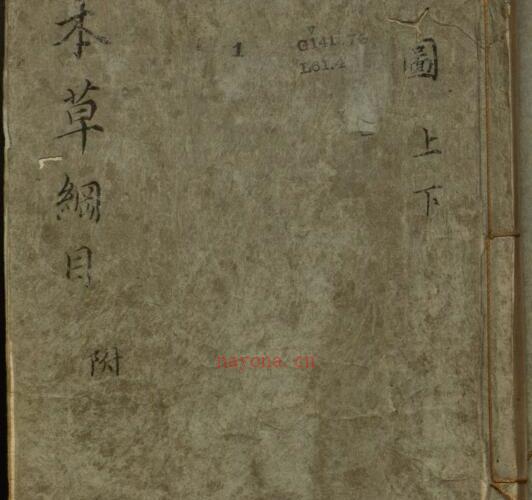 圖 上 下
本草綱目
附
1
G141.76
L61.4
nayona.cn